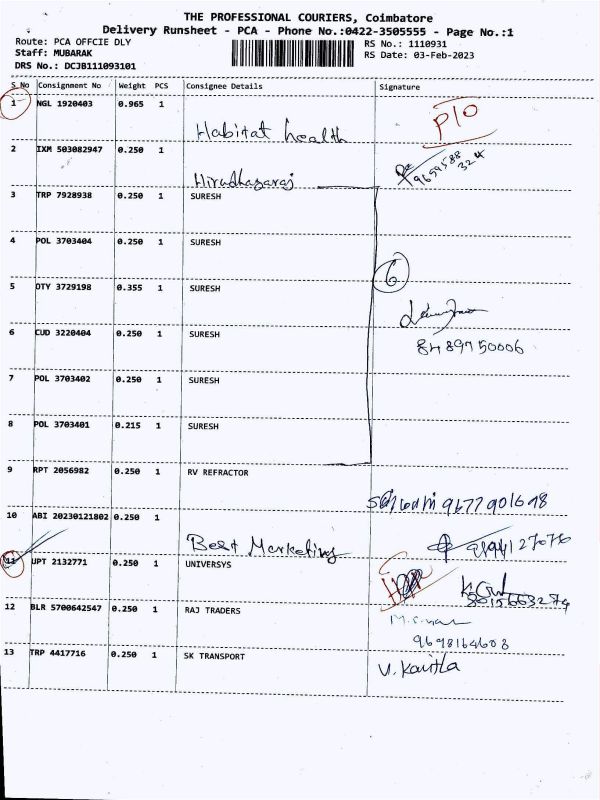 THE PROFESSIONAL COURIERS, Coimbatore
Delivery Runsheet - PCA - Phone No.:0422-3505555 - Page No.:1
Route: PCA OFFCIE DLY
Staff: MUBARAK
DRS No.: DCJB111093101
RS No.: 1110931
RS Date: 03-Feb-2023
S No Consignment No Weight PCS Consignee Details Signature
1 NGL 1920403 0.965 1 Habitat health P/O
2 IXM 503082947 0.250 1 Hirudhayaraj 9659588324
3 TRP 7928938 0.250 1 SURESH
4 POL 3703404 0.250 1 SURESH
5 OTY 3729198 0.355 1 SURESH 6
6 CUD 3220404 0.250 1 SURESH 8489750006
7 POL 3703402 0.250 1 SURESH
8 POL 3703401 0.215 1 SURESH
9 RPT 2056982 0.250 1 RV REFRACTOR 9677901698
10 ABI 20230121802 0.250 1 Best Marketing
11 UPT 2132771 0.250 1 UNIVERSYS
12 BLR 5700642547 0.250 1 RAJ TRADERS 9698164608
13 TRP 4417716 0.250 1 SK TRANSPORT V. Kavitha